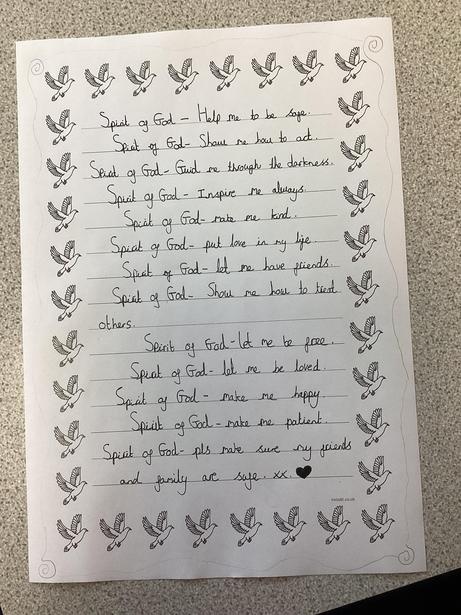 Spirit of God - Help me to be safe.
Spirit of God - Show me how to act.
Spirit of God - Guid me through the darkness.
Spirit of God - Inspire me always.
Spirit of God - make me kind.
Spirit of God - put love in my life.
Spirit of God - let me have friends.
Spirit of God - Show me how to treat
others.
Spirit of God - let me be free.
Spirit of God - let me be loved.
Spirit of God - make me happy.
Spirit of God - make me patient.
Spirit of God - pls make sure my friends
and family are safe. xx. ♥